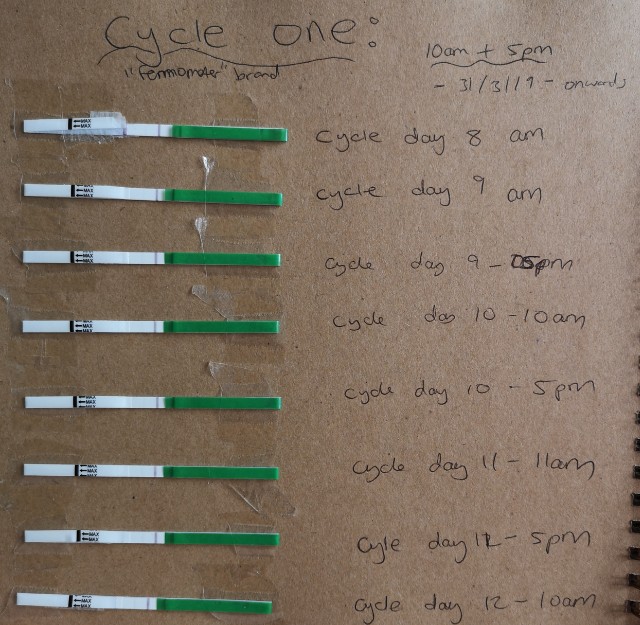 Cycle one:
"Femometer" brand
10am + 5pm
- 31/3/19 - onwards
←MAX
←MAX
cycle day 8 am
←MAX
←MAX
cycle day 9 am
←MAX
←MAX
cycle day 9 - 5pm
←MAX
←MAX
cycle day 10 - 10am
←MAX
←MAX
cycle day 10 - 5pm
←MAX
←MAX
cycle day 11 - 11am
←MAX
←MAX
cycle day 11 - 5pm
←MAX
←MAX
cycle day 12 - 10am